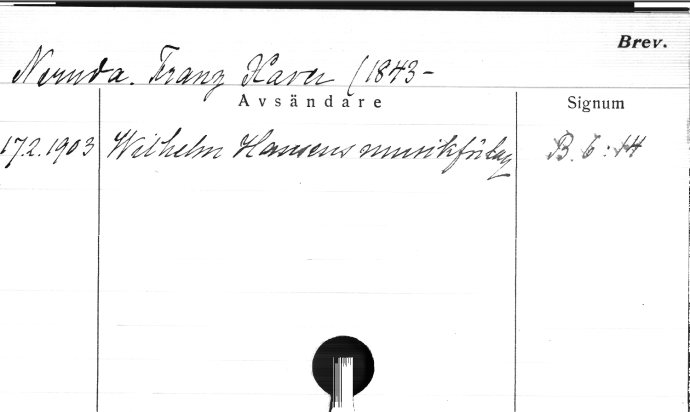 Brev.
Neruda. Franz Xaver (1843-
Avsändare Signum
17.2.1903 Wilhelm Hansens musikförlag B. 6: 14